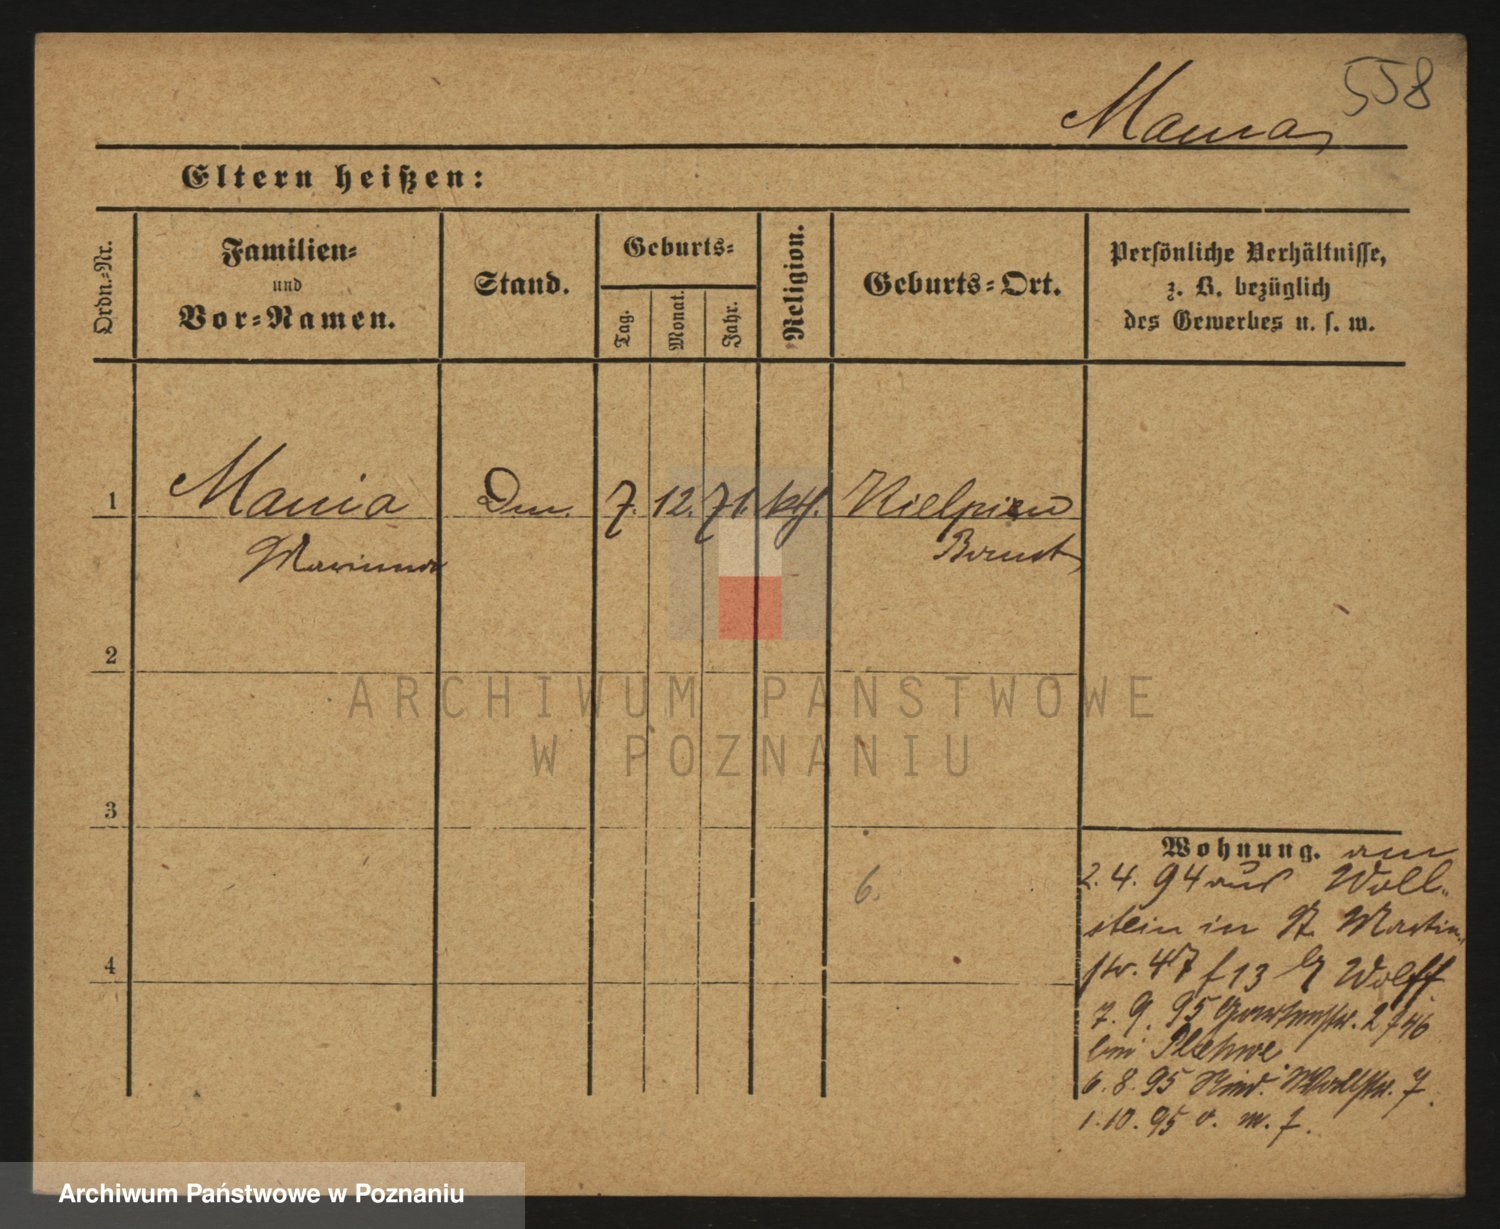 558
Mania
Eltern heißen:
Ordn.-Nr.
Familien-
und
Vor-Namen.
Stand.
Geburts-
Tag.
Monat.
Jahr.
Religion.
Geburts-Ort.
Persönliche Verhältnisse,
z. B. bezüglich
des Gewerbes u. s. w.
1
Mania Dm. 7. 12. 71. kth. Kielpien
Marianna Bomst
2
ARCHIWUM PAŃSTWOWE
W POZNANIU
3
Wohnung. am
2. 4. 94 aus Woll-
stein in St. Martin
str. 47 f 13 Wolff
7. 9. 95 Gartenstr. 2
bei Plehwe
6. 8. 95 Wallstr. 7
1. 10. 95 o.
6.
4
Archiwum Państwowe w Poznaniu